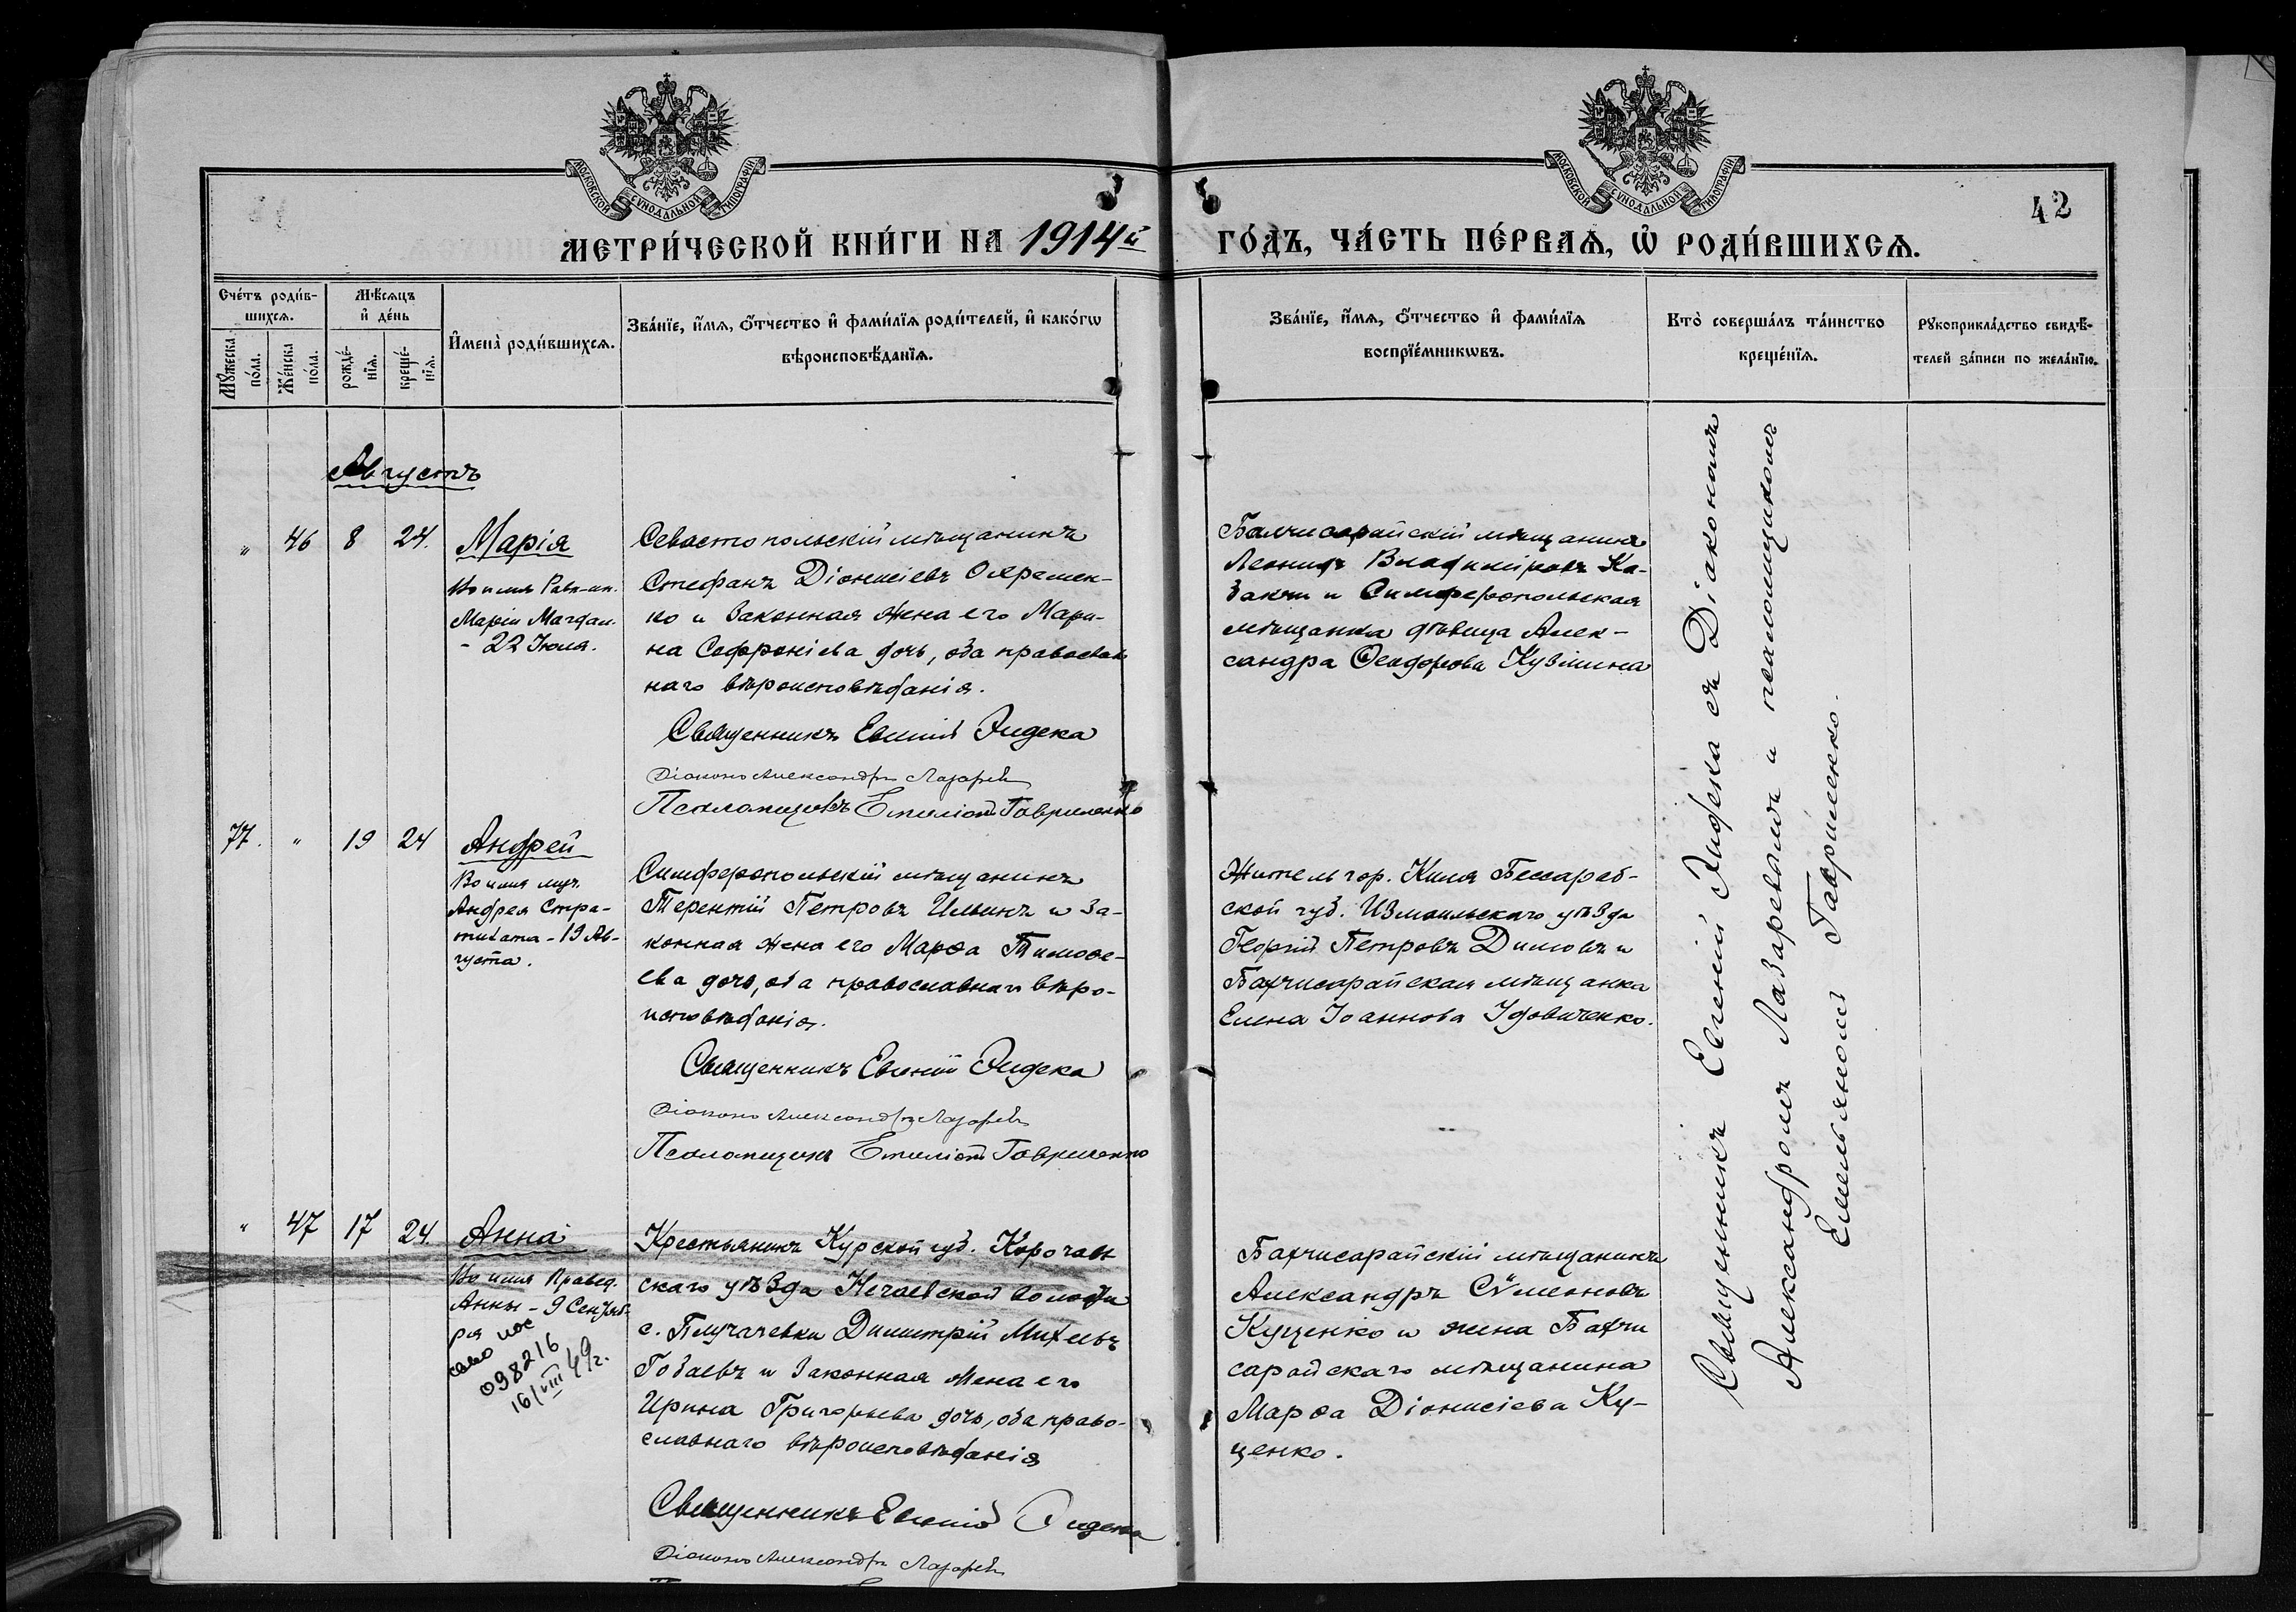 МОСКОВСКОЙ СѴНОДАЛЬНОЙ ТИПОГРАФІИ
МОСКОВСКОЙ СѴНОДАЛЬНОЙ ТИПОГРАФІИ
42
МЕТРИ́ЧЕСКОЙ КНИ́ГИ НА 1914й
ГО́ДЪ, ЧА́СТЬ ПЕ́РВАѦ, Ѡ҆ РОДИ́ВШИХСѦ.
Сче́тъ роди́в-
шихсѧ.
Мꙋ́жеска
по́ла.
Же́нска
по́ла.
Мѣ́сѧцъ
и҆ де́нь
рожде́-
нїѧ.
креще́-
нїѧ.
И҆мена̀ роди́вшихсѧ.
Зва́нїе, и҆́мѧ, ѻ҆́тчество и҆ фами́лїѧ роди́телей, и҆ како́гѡ
вѣроисповѣ́данїѧ.
Зва́нїе, и҆́мѧ, ѻ҆́тчество и҆ фами́лїѧ
воспрїе́мникѡвъ.
Кто̀ соверша́лъ та́инство
креще́нїѧ.
Рꙋкоприкла́дство свидѣ́-
телей за́писи по жела́нїю.
Августъ
" 46 8 24. Марія
Во имя Равн-ап.
Маріи Магдал.
- 22 Іюля.
Севастопольскій мѣщанинъ
Стефанъ Діонисіевъ Охремен-
ко и законная жена его Мари-
на Софроніева дочь, оба православ
наго вѣроисповѣданія.
Священникъ Евгеній Эндека
Діаконъ Александръ Лазаревъ
Псаломщикъ Емиліанъ Гавриленко
Бахчисарайскій мѣщанинъ
Леонидъ Владиміровъ Ка-
закъ и Симферопольская
мѣщанка дѣвица Алек-
сандра Ѳеодорова Кузьмина
77. " 19 24 Андрей
Во имя муч.
Андрея Стра-
тилата - 19 Ав-
густа.
Симферопольскій мѣщанинъ
Терентій Петровъ Ильинъ и за-
конная жена его Марѳа Тимоѳе-
ева дочь, оба православнаго вѣро-
исповѣданія.
Священникъ Евгеній Эндека
Діаконъ Александръ Лазаревъ
Псаломщикъ Емиліанъ Гавриленко
Житель гор. Килія Бессараб-
ской губ. Измаильскаго уѣзда
Георгій Петровъ Димовъ и
Бахчисарайская мѣщанка
Елена Іоаннова Удовиченко.
" 47 17 24. Анна
Во имя Правед.
Анны - 9 Сентяб-
ря
098216
16/VIII 49г.
Крестьянинъ Курской губ. Корочан
скаго уѣзда Нечаевской волости
с. Димитрій
и законная жена его
Ирина Григорьева дочь, оба право-
славнаго вѣроисповѣданія
Священникъ Евгеній Эндека
Діаконъ Александръ Лазаревъ
Бахчисарайскій мѣщанинъ
Александръ Сѵмеоновъ
Куценко и жена Бахчи
сарайскаго мѣщанина
Марѳа Діонисіева Ку-
ценко.
Священникъ Евгеній Эндека съ Діакономъ
Александромъ Лазаревымъ и псаломщикомъ
Емельяномъ Гавриленко.